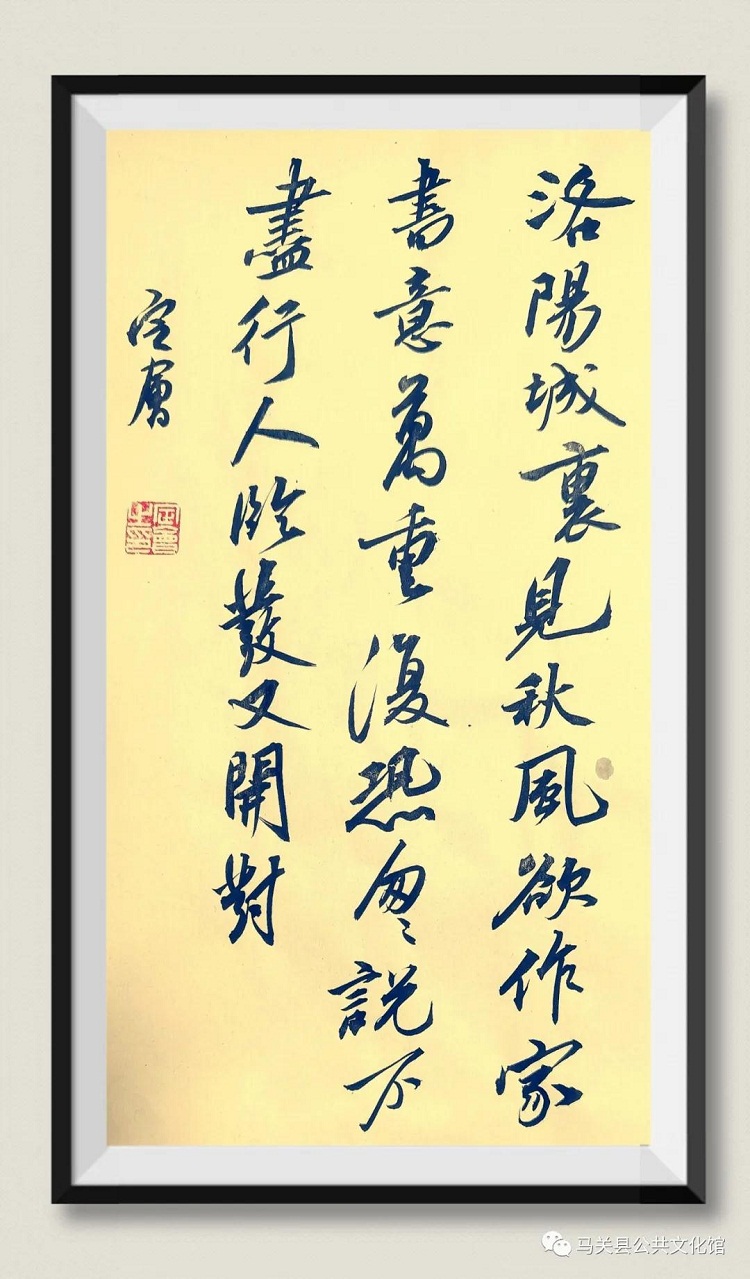 洛陽城裏見秋風欲作家
書意萬重復恐匆々說不
盡行人臨發又開對
马关县公共文化馆